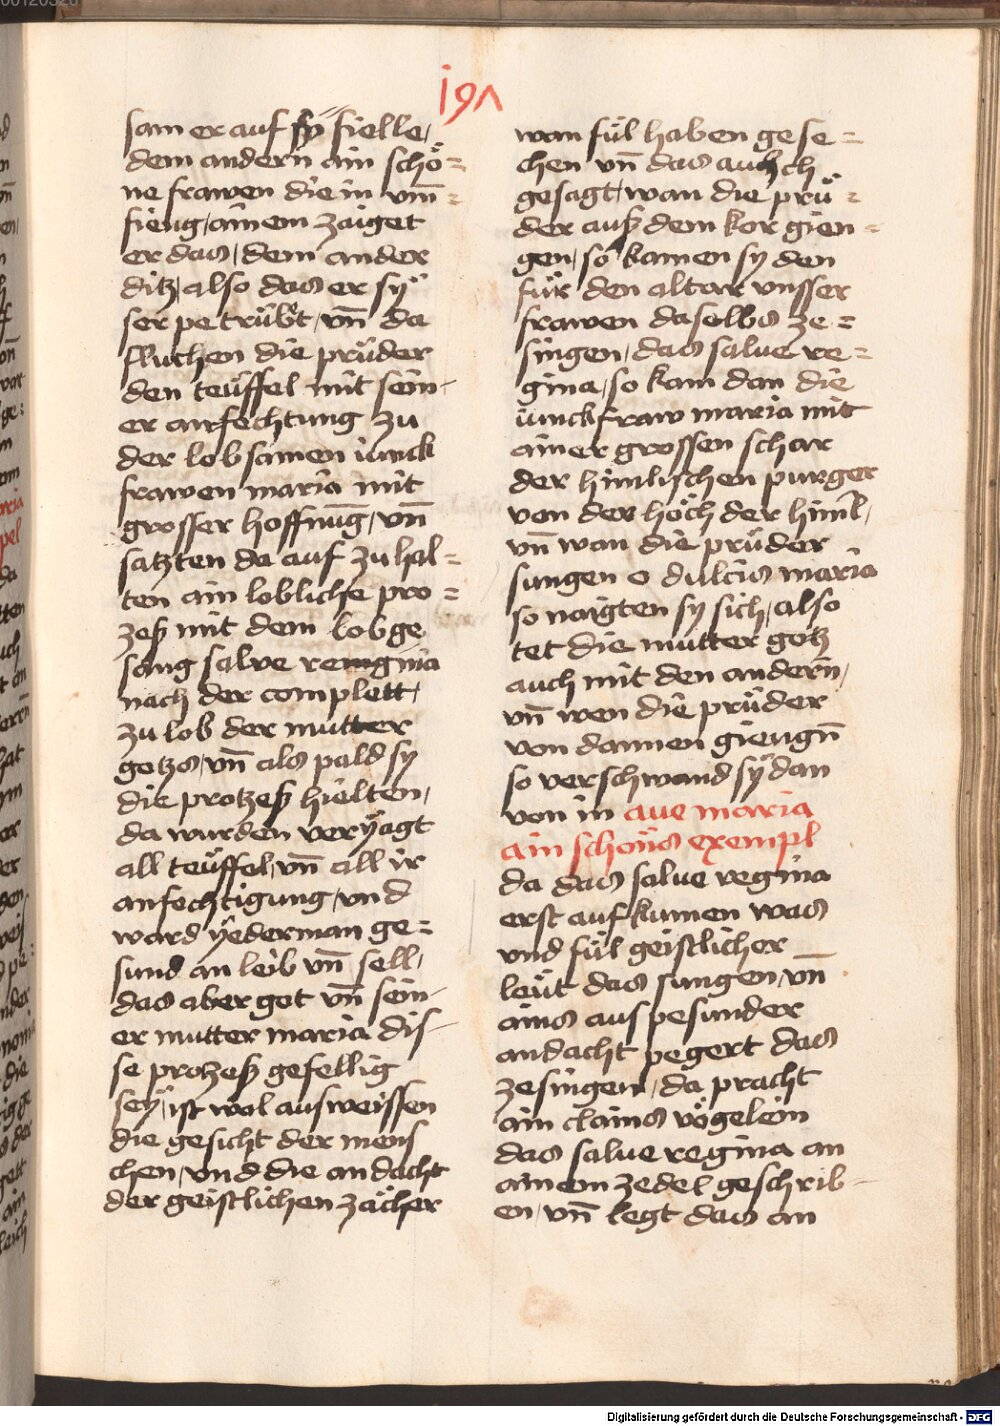 00120320
i9ʌ
sam er auf sy fielle,
dem andern ain schö=
ne frawen die in vm̄=
fieng, ainem zaiget
er das, dem ander
ditz, also das er sÿ
ser petrübt, vn̄ da
fluchen die prüder
den teüffel mit sein-
er anfechtung zu
der lobsamen iunck
frawen maria mit
grosser hoffnūg, vn̄
satzten da auf zu hal=
ten ain lobliche pro=
zeß mit dem lobge
sang salve remgina
nach der complett,
zu lob der mutter
gotzs, vn̄ als pald sy
die protzeß hielten,
da wurden veryagt
all teüffel, vn̄ all ir
anfechtigung, vnd
ward ÿederman ge=
sund an leib vn̄ sell,
das aber got vn̄ sein-
er mutter maria dis-
se prozeß gefellig
seÿ, ist wol ausweissen
die gesicht der mens
chen, vnd die andacht
der geistlichen zächer
wan fül haben gese=
chen vn̄ das auch
gesagt, wan die prü=
der auß dem kor gien=
gen, so kamen sy den
für den altar vnsser
frawen daselbs ze=
singen, das salue re=
gina, so kam dan die
iunckfraw maria mit
ainer grossen schar
der himlischen purger
von der höch der himl,
vn̄ wan die prüder
sungen o dulcis maria
so naigten sy sich, also
tet die mutter gotz
auch mit den andern,
vn̄ wen die prüder
von dannen giengn̄
so verschwand sÿ dan
von in aue maria
ain schöns exempl
da das salue regina
erst auf kumen was
vnd fül geistlicher
leüt das sungen, vn̄
ains aus pesunder
andacht pegert das
zesingen, da pracht
ain clains vögelein
das salue regina an
ainem zedel geschrib-
en, vn̄ legt das an
Digitalisierung gefördert durch die Deutsche Forschungsgemeinschaft - DFG